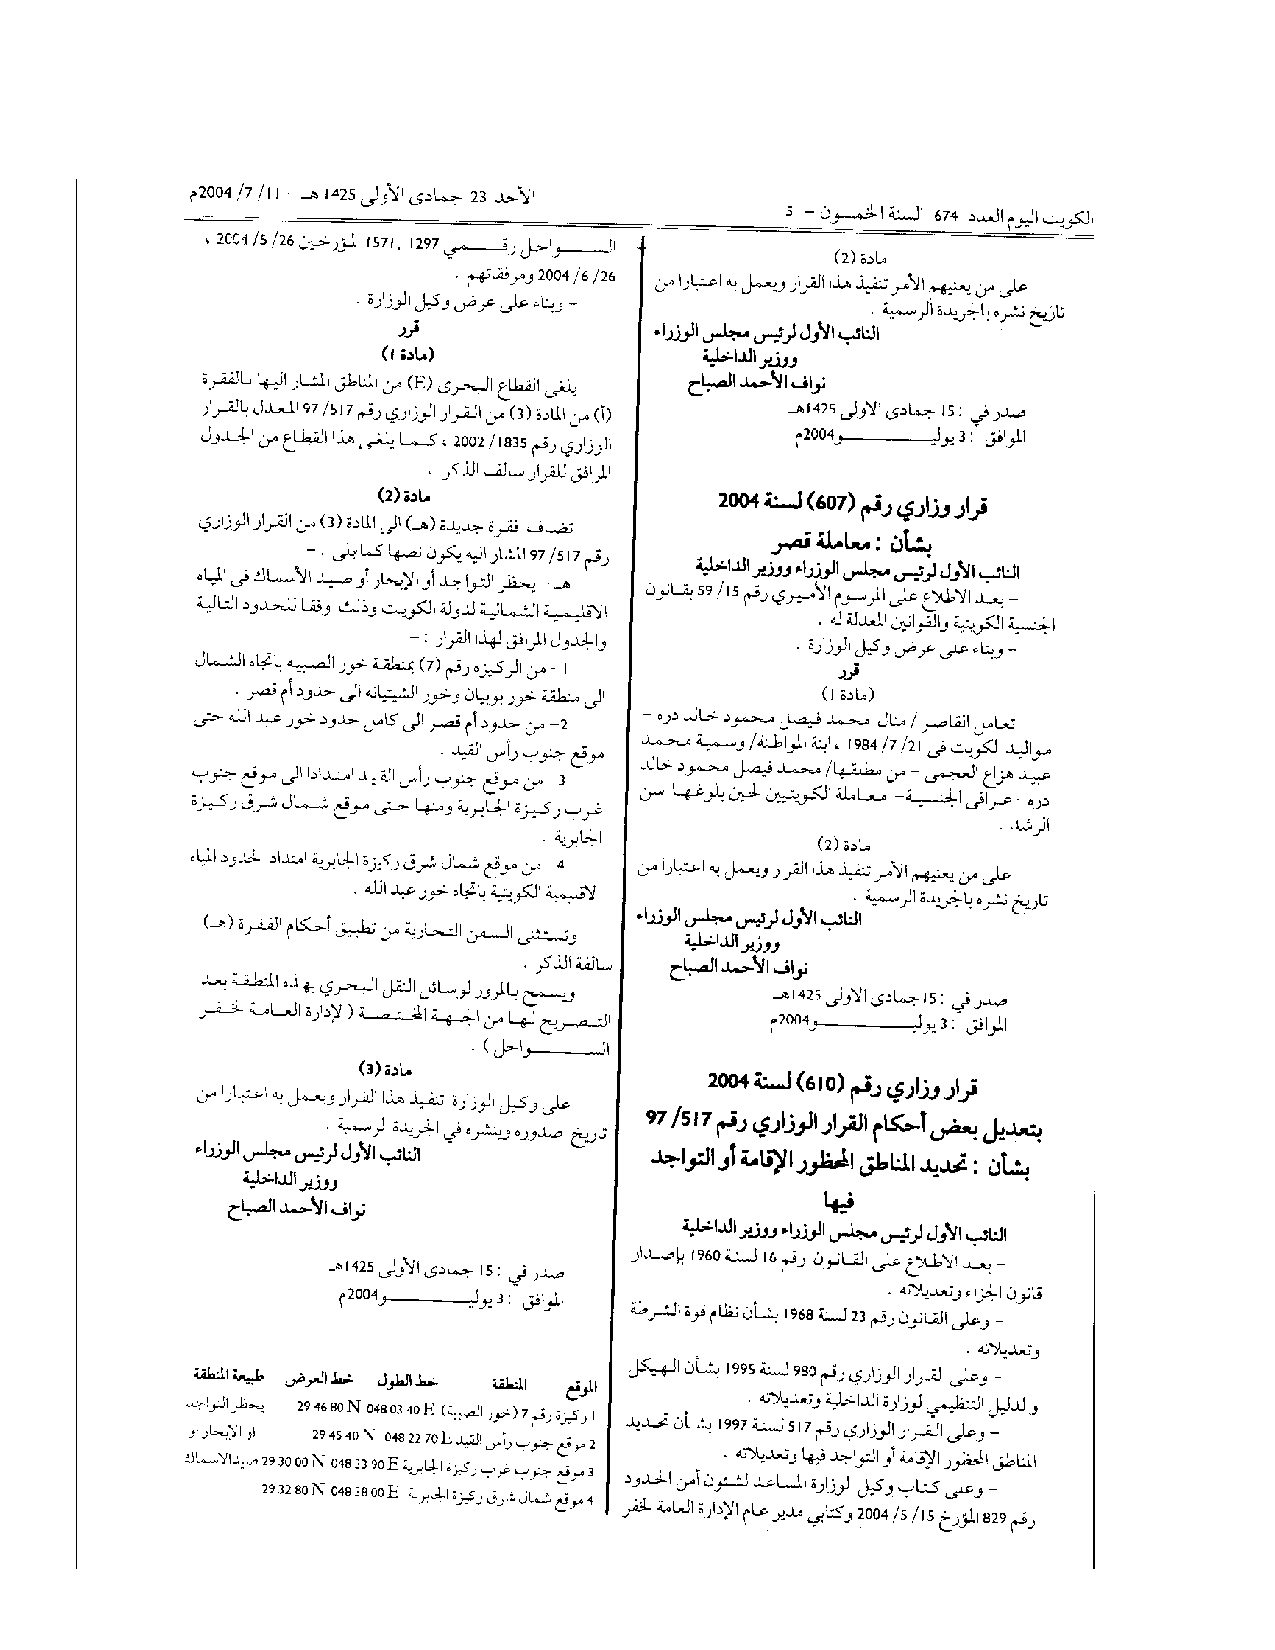 الكويت اليوم العدد 674 السنة الخمسون - 5
الأحد 23 جمادى الأولى 1425 هـ - 11 /7 /2004م
مادة (2)
على من يعنيهم الأمر تنفيذ هذا القرار ويعمل به اعتبارا من
تاريخ نشره بالجريدة الرسمية .
النائب الأول لرئيس مجلس الوزراء
ووزير الداخلية
نواف الأحمد الصباح
صدر في : 15 جمادى الأولى 1425هـ
الموافق : 3 يوليــــــو2004م
قرار وزاري رقم (607) لسنة 2004
بشأن : معاملة قصر
النائب الأول لرئيس مجلس الوزراء ووزير الداخلية
- بعد الاطلاع على المرسوم الأميري رقم 15/ 59 بقانون
الجنسية الكويتية والقوانين المعدلة له .
- وبناء على عرض وكيل الوزارة .
قرر
(مادة 1)
تعامل القاصر / منال محمد فيصل محمود خالد دره -
مواليد الكويت في 21/ 7/ 1984 ، ابنة المواطنة/ وسمية محمد
عبيد هزاع العجمي - من مطلقها/ محمد فيصل محمود خالد
دره - عراقي الجنسية - معاملة الكويتيين لحين بلوغها سن
الرشد .
مادة (2)
على من يعنيهم الأمر تنفيذ هذا القرار ويعمل به اعتبارا من
تاريخ نشره بالجريدة الرسمية .
النائب الأول لرئيس مجلس الوزراء
ووزير الداخلية
نواف الأحمد الصباح
صدر في : 15 جمادى الأولى 1425هـ
الموافق : 3 يوليــــــو2004م
قرار وزاري رقم (610) لسنة 2004
بتعديل بعض أحكام القرار الوزاري رقم 517/ 97
بشأن : تحديد المناطق المحظور الإقامة أو التواجد
فيها
النائب الأول لرئيس مجلس الوزراء ووزير الداخلية
- بعد الاطلاع على القانون رقم 16 لسنة 1960 بإصدار
قانون الجزاء وتعديلاته .
- وعلى القانون رقم 23 لسنة 1968 بشأن نظام قوة الشرطة
وتعديلاته .
- وعلى القرار الوزاري رقم 980 لسنة 1995 بشأن الهيكل
والدليل التنظيمي لوزارة الداخلية وتعديلاته .
- وعلى القرار الوزاري رقم 517 لسنة 1997 بشأن تحديد
المناطق المحظور الإقامة أو التواجد فيها وتعديلاته .
- وعلى كتاب وكيل الوزارة المساعد لشئون أمن الحدود
رقم 829 المؤرخ 15/ 5/ 2004 وكتابي مدير عام الإدارة العامة لخفر
الســـواحل رقـــمي 1297 ,1571 المؤرخين 26/ 5/ 2004 ،
26/ 6/ 2004 ومرفقاتهم .
- وبناء على عرض وكيل الوزارة .
قرر
(مادة 1)
يلغى القطاع البحري (E) من المناطق المشار إليها بالفقرة
(أ) من المادة (3) من القرار الوزاري رقم 517/ 97 المعدل بالقرار
الوزاري رقم 1835/ 2002 ، كما يلغى هذا القطاع من الجدول
المرافق للقرار سالف الذكر .
مادة (2)
تضاف فقرة جديدة (هـ) الى المادة (3) من القرار الوزاري
رقم 517/ 97 المشار اليه يكون نصها كما يلي . -
هـ - يحظر التواجد أو الإبحار أو صيد الأسماك في المياه
الاقليمية الشمالية لدولة الكويت وذلك وفقا للحدود التالية
والجدول المرافق لهذا القرار : -
1 - من الركيزه رقم (7) بمنطقة خور الصبيه باتجاه الشمال
الى منطقة خور بوبيان وخور الشيتيانه الى حدود أم قصر .
2- من حدود أم قصر الى كامل حدود خور عبد الله حتى
موقع جنوب رأس القيد .
3 من موقع جنوب رأس القيد امتدادا الى موقع جنوب
غرب ركيزة الجابرية ومنها حتى موقع شمال شرق ركيزة
الجابرية .
4 من موقع شمال شرق ركيزة الجابرية امتداد لحدود المياه
الاقليمية الكويتية باتجاه خور عبد الله .
وتستثنى السفن التجارية من تطبيق أحكام الفقرة (هـ)
سالفة الذكر .
ويسمح بالمرور لوسائل النقل البحري بهذه المنطقة بعد
التصريح لها من الجهة المختصة ( الإدارة العامة لخفر
الســـــواحل ) .
مادة (3)
على وكيل الوزارة تنفيذ هذا القرار ويعمل به اعتبارا من
تاريخ صدوره وينشر في الجريدة الرسمية .
النائب الأول لرئيس مجلس الوزراء
ووزير الداخلية
نواف الأحمد الصباح
صدر في : 15 جمادى الأولى 1425هـ
الموافق : 3 يوليــــــو2004م
الموقع المنطقة خط الطول خط العرض طبيعة المنطقة
1 ركيزة رقم 7 (خور الصبية) 048 03 40 E 29 46 80 N يحظر التواجد
2 موقع جنوب رأس القيد 048 22 70 E 29 45 40 N أو الابحار أو
3 موقع جنوب غرب ركيزة الجابرية 048 33 90 E 29 30 00 N صيد الاسماك
4 موقع شمال شرق ركيزة الجابرية 048 38 00 E 29 32 80 N